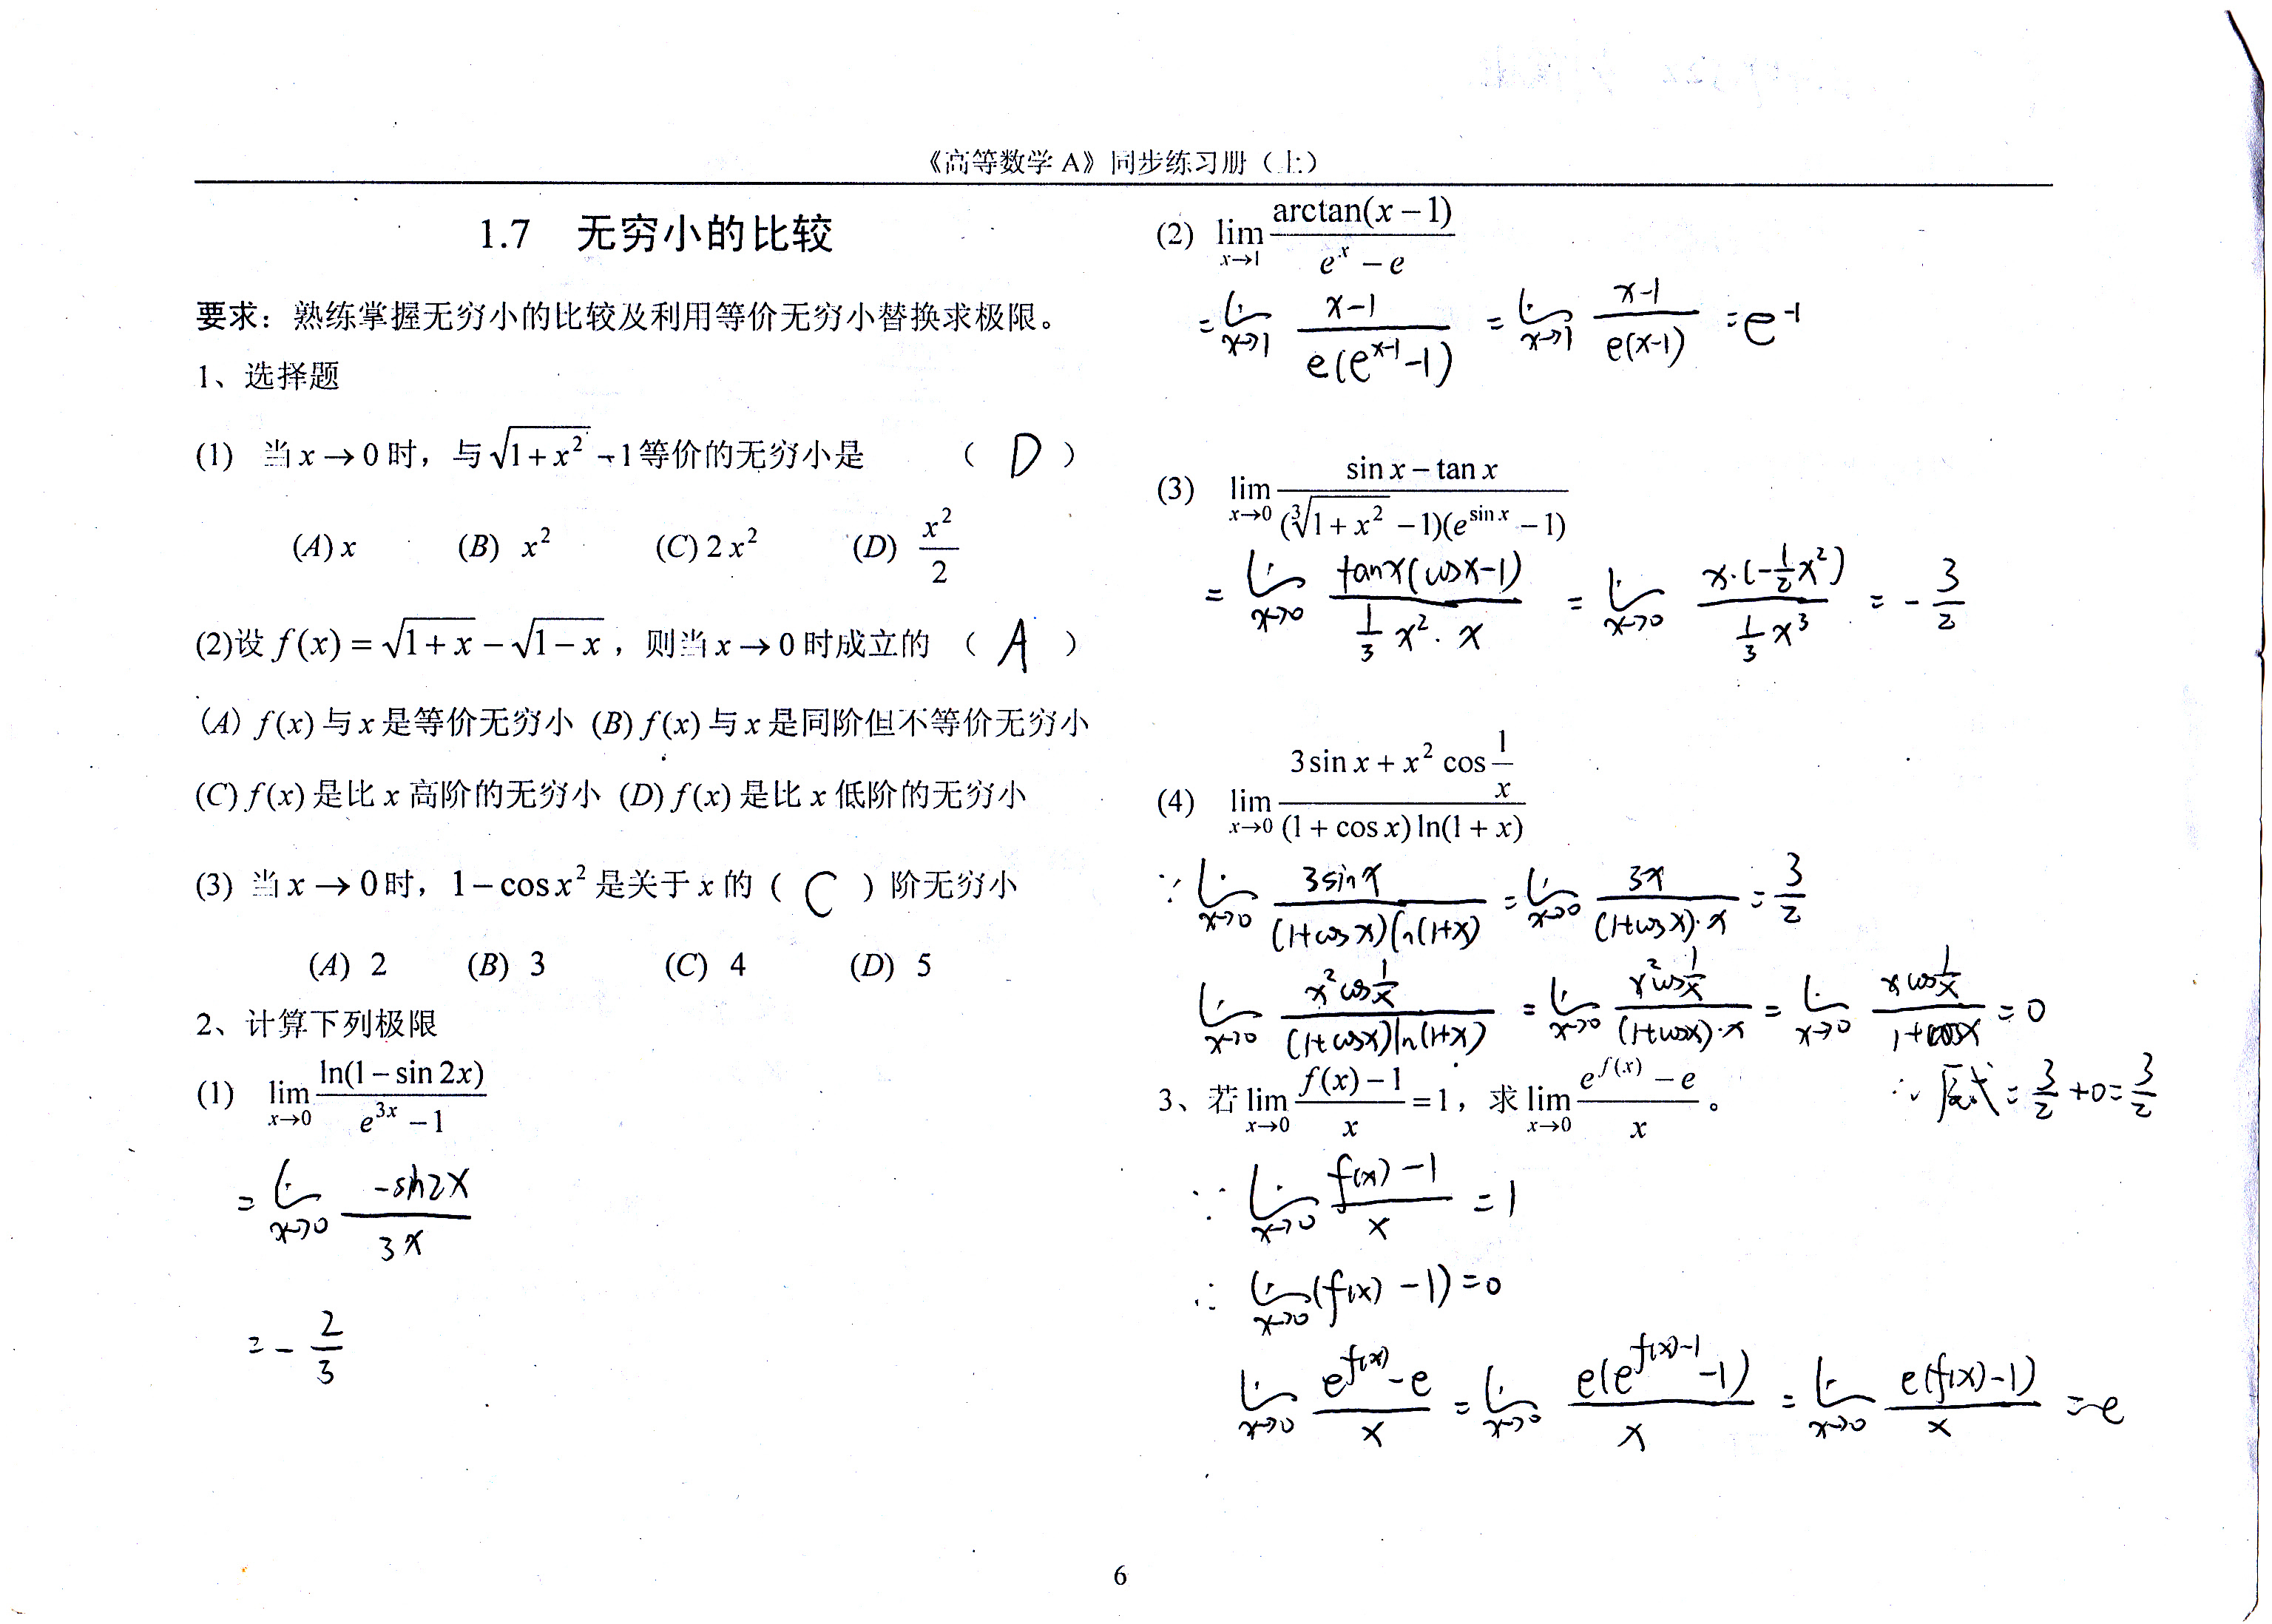 《高等数学 A》同步练习册（上）
1.7 无穷小的比较
要求：熟练掌握无穷小的比较及利用等价无穷小替换求极限。
1、选择题
(1) 当 x→0 时，与 √(1+x²) −1 等价的无穷小是 （ D ）
(A) x (B) x² (C) 2x² (D) x²/2
(2)设 f(x) = √(1+x) − √(1−x)，则当 x→0 时成立的 （ A ）
(A) f(x) 与 x 是等价无穷小 (B) f(x) 与 x 是同阶但不等价无穷小
(C) f(x) 是比 x 高阶的无穷小 (D) f(x) 是比 x 低阶的无穷小
(3) 当 x→0 时，1−cos x² 是关于 x 的（ C ）阶无穷小
(A) 2 (B) 3 (C) 4 (D) 5
2、计算下列极限
(1) lim_{x→0} ln(1−sin 2x)/(e^{3x} −1)
= lim_{x→0} (−sin2x)/(3x)
= −2/3
(2) lim_{x→1} arctan(x−1)/(e^x − e)
= lim_{x→1} (x−1)/(e(e^{x−1}−1)) = lim_{x→1} (x−1)/(e(x−1)) = e^{−1}
(3) lim_{x→0} (sin x − tan x)/((∛(1+x²) −1)(e^{sin x} −1))
= lim_{x→0} (tanx(cosx−1))/(1/3 x²·x) = lim_{x→0} (x·(−1/2 x²))/(1/3 x³) = −3/2
(4) lim_{x→0} (3sin x + x² cos 1/x)/((1+cos x)ln(1+x))
∵ lim_{x→0} 3sinx/((1+cosx)ln(1+x)) = lim_{x→0} 3x/((1+cosx)·x) = 3/2
lim_{x→0} (x²cos 1/x)/((1+cosx)ln(1+x)) = lim_{x→0} (x²cos 1/x)/((1+cosx)·x) = lim_{x→0} (xcos 1/x)/(1+cosx) = 0
∴ 原式 = 3/2 + 0 = 3/2
3、若 lim_{x→0} (f(x)−1)/x = 1，求 lim_{x→0} (e^{f(x)} − e)/x。
∵ lim_{x→0} (f(x)−1)/x = 1
∴ lim_{x→0} (f(x)−1) = 0
lim_{x→0} (e^{f(x)}−e)/x = lim_{x→0} e(e^{f(x)−1}−1)/x = lim_{x→0} e(f(x)−1)/x = e
6